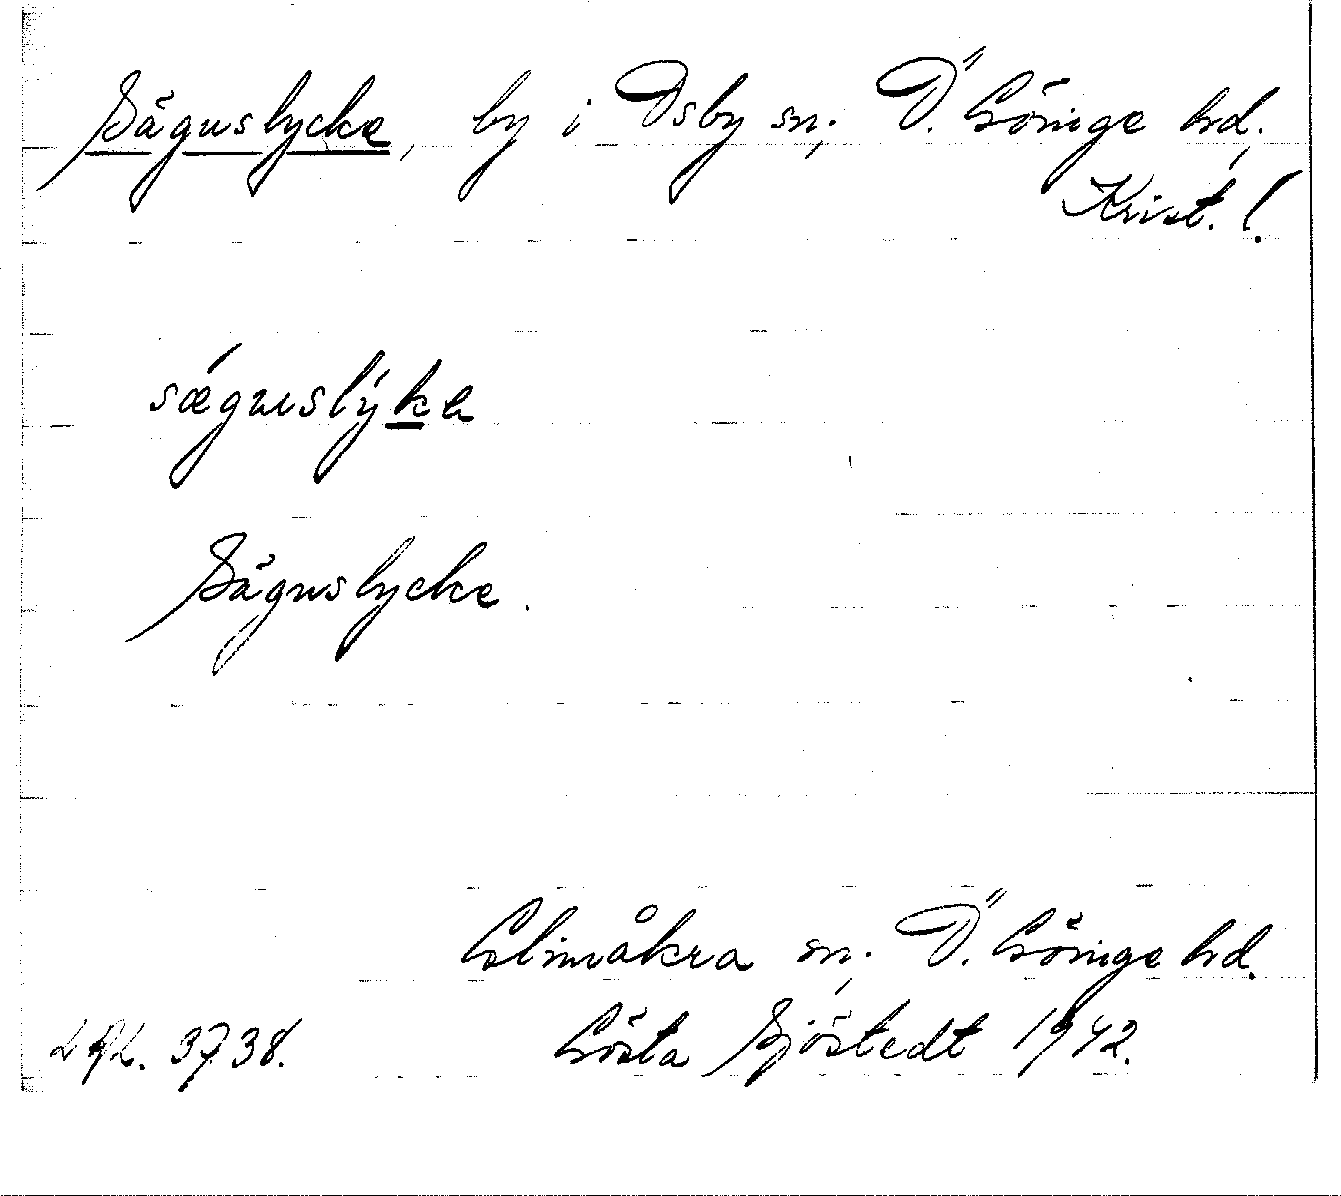 Sägnslycke, by i Osby sn, Ö. Göinge hd,
Krist. l.
sǽgnslýka
Sägnslycke.
Glimåkra sn, Ö. Göinge hd.
Gösta Sjöstedt 1942.
3738.